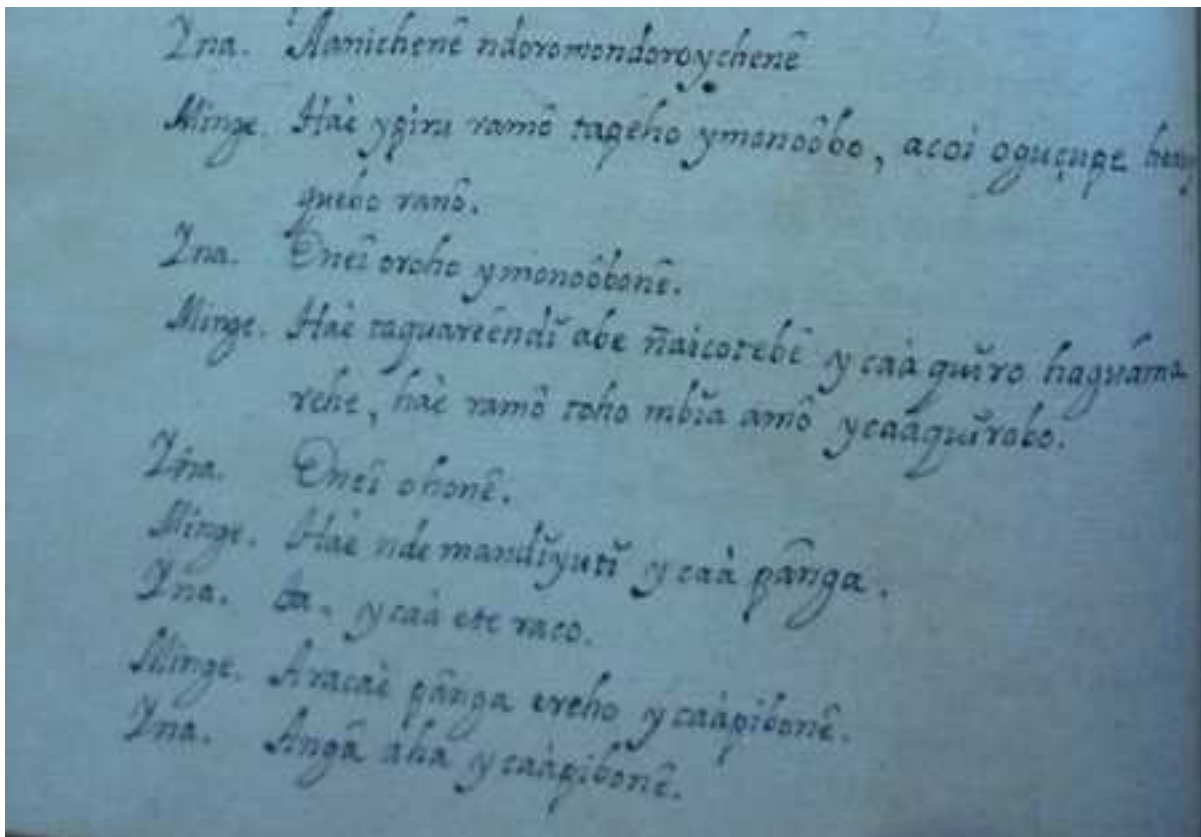 Yna. Aanichenê ndoromondoroychenê
Minge. Haè ypiru ramô tapeho ymonoôbo, acoi oguçupe
guebo ramô.
Yna. Eneî oroho ymonoôbonê.
Minge. Haè taquareêndĭ abe ñaicotebê y caà quĭro haguáma
rehe, haè ramô toho mbĭa amô ycaàquĭrobo.
Yna. Eneî ohonê.
Minge. Haè nde mandĭyutĭ y caà pânga.
Yna. ta. y caà ete raco.
Minge. Aracaè pânga ereho y caàpibonê.
Yna. Angâ aha y caàpibonê.